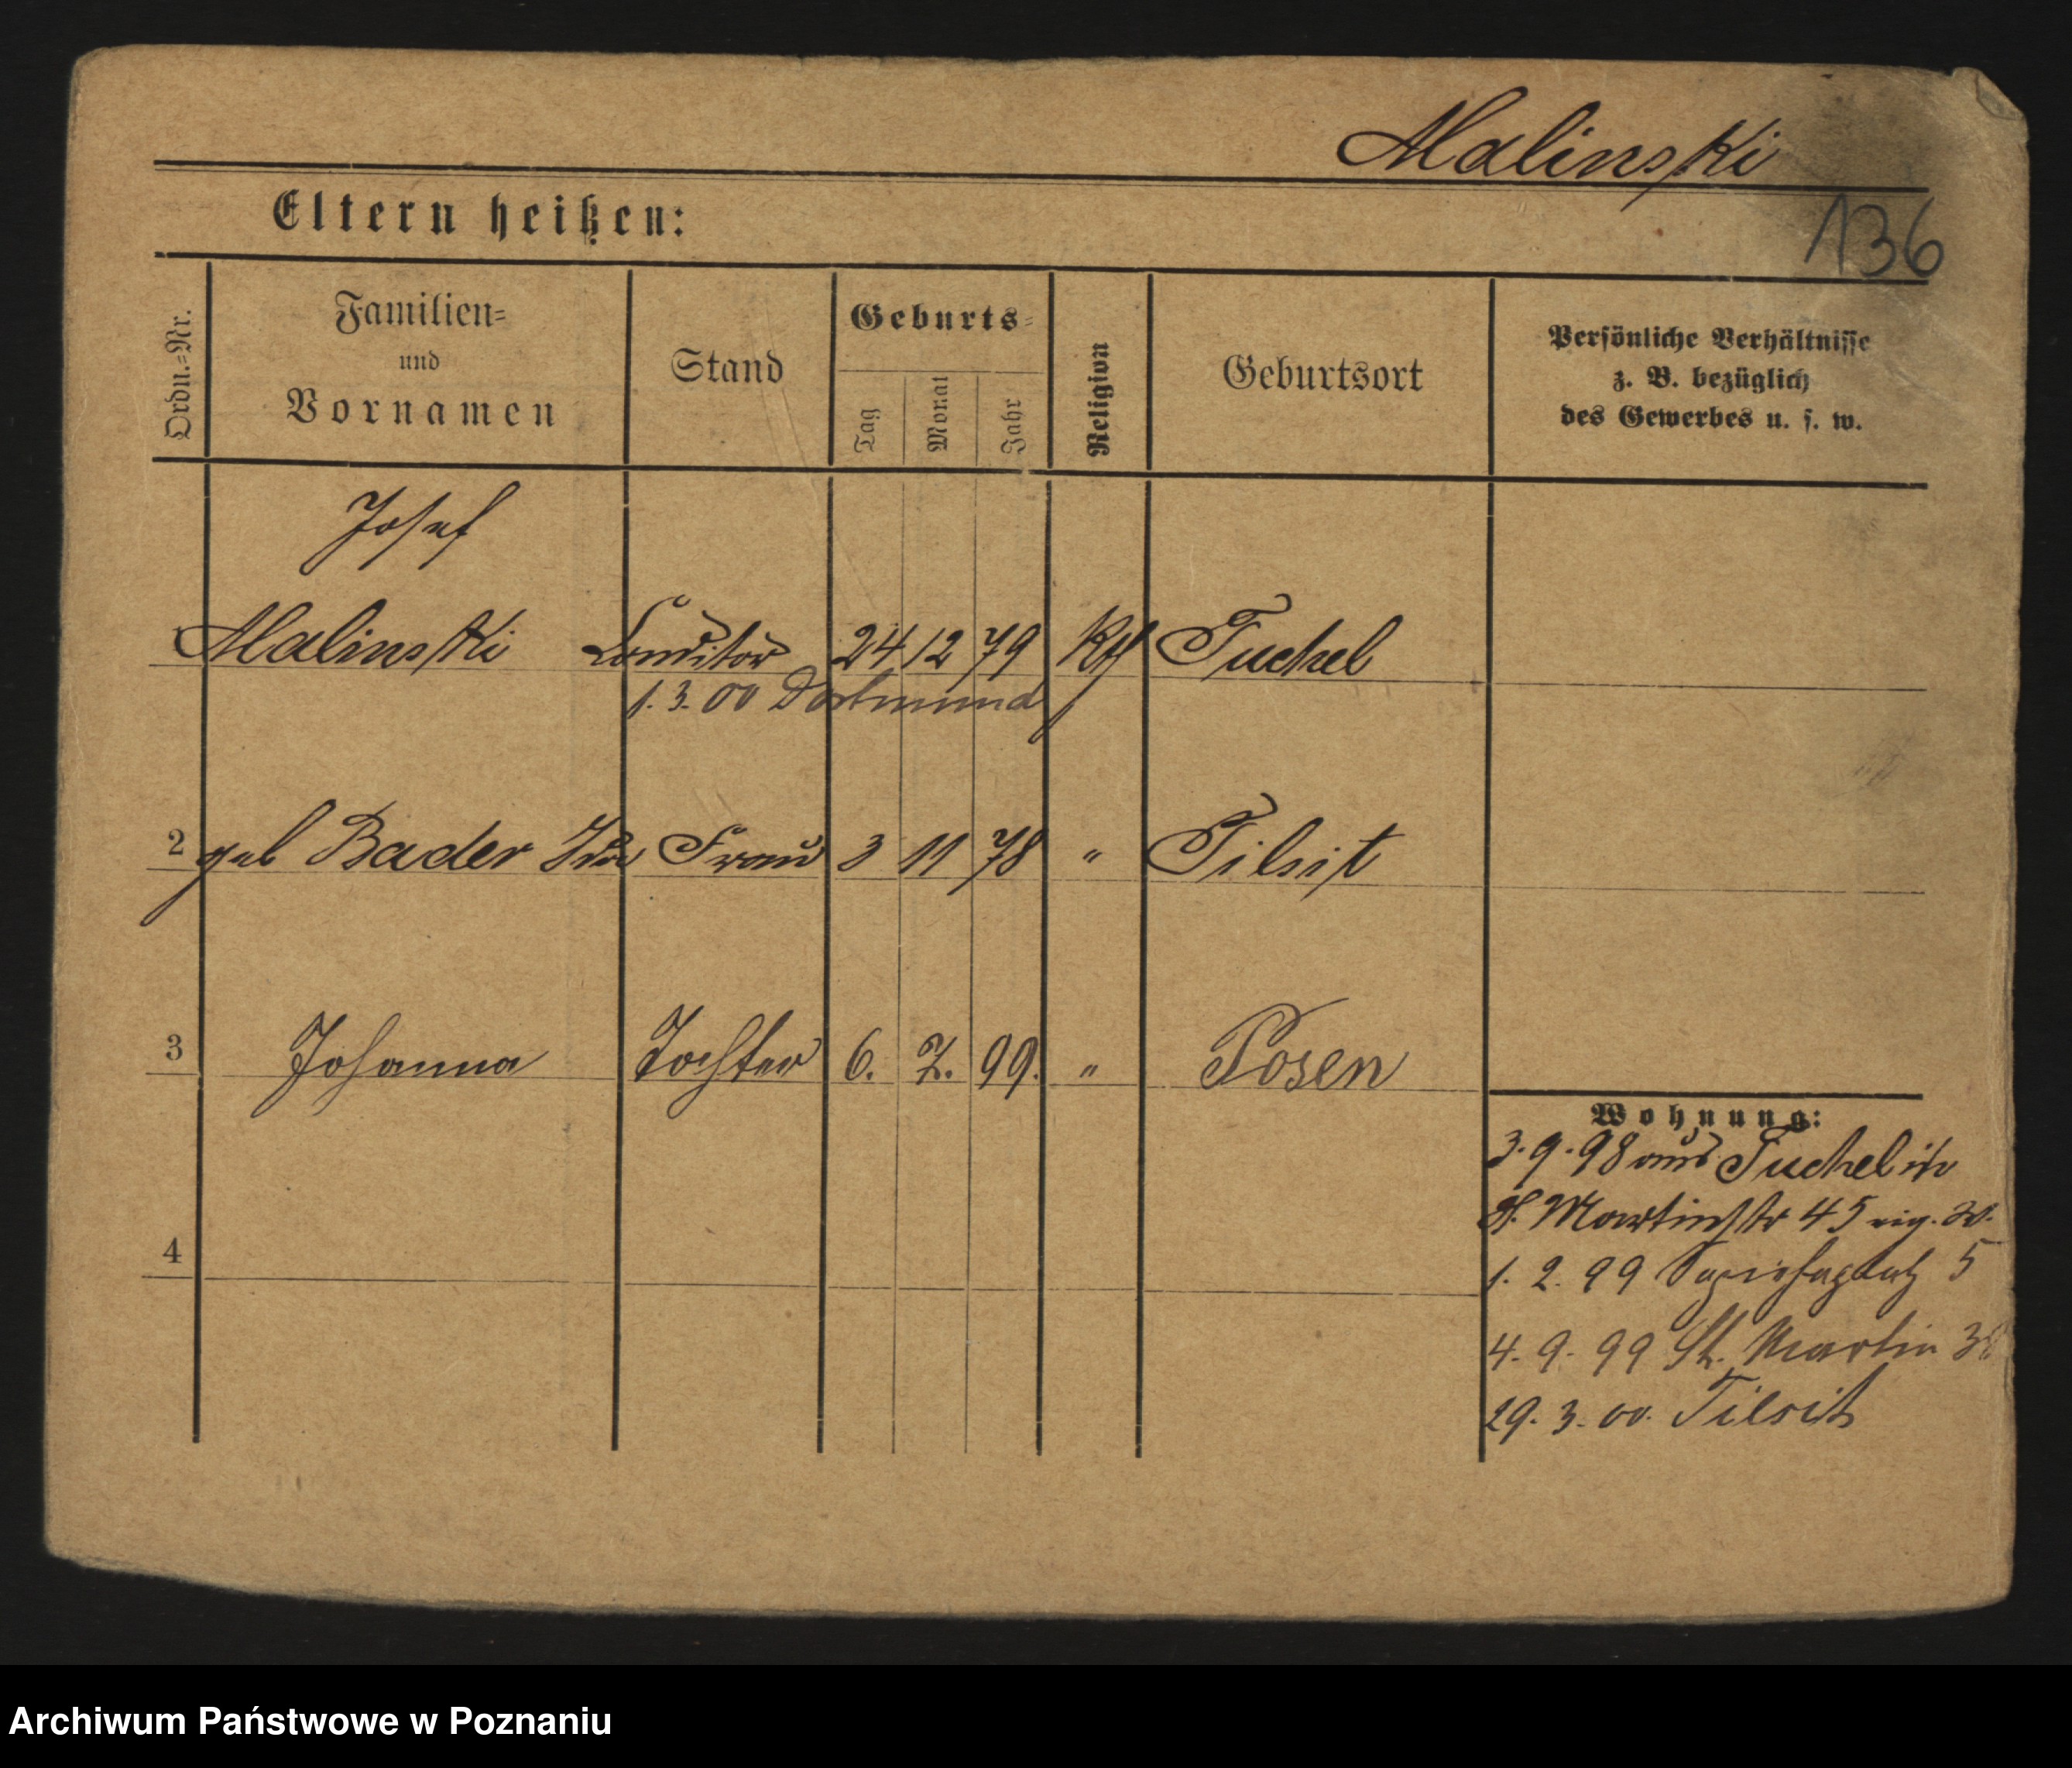 Malinski
136
Eltern heißen:
Ordn.-Nr.
Familien-
und
Vornamen
Stand
Geburts-
Tag
Monat
Jahr
Religion
Geburtsort
Persönliche Verhältnisse
z. B. bezüglich
des Gewerbes u. s. w.
Josef
Malinski Conditor 24 12 79 Kth Tuchel
1. 3. 00 Dortmund
2 geb Bader Frau 3 11 78 " Tilsit
3 Johanna Tochter 6. 7. 99. " Posen
4
Wohnung:
3. 9. 98 aus Tuchel in
St. Martinstr 45 eig. W.
1. 2. 99 Sapiehaplatz 5
4. 9. 99 St. Martin
29. 3. 00. Tilsit
Archiwum Państwowe w Poznaniu